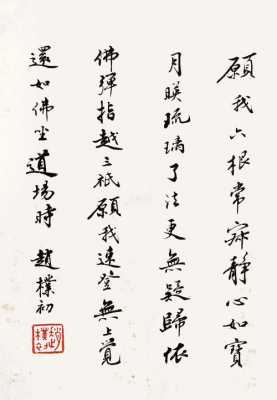 願我六根常寂靜心如寶
月暎琉璃了法更無疑歸依
佛彈指越三祇願我速登無上覺
還如佛坐道場時 趙樸初
趙樸初